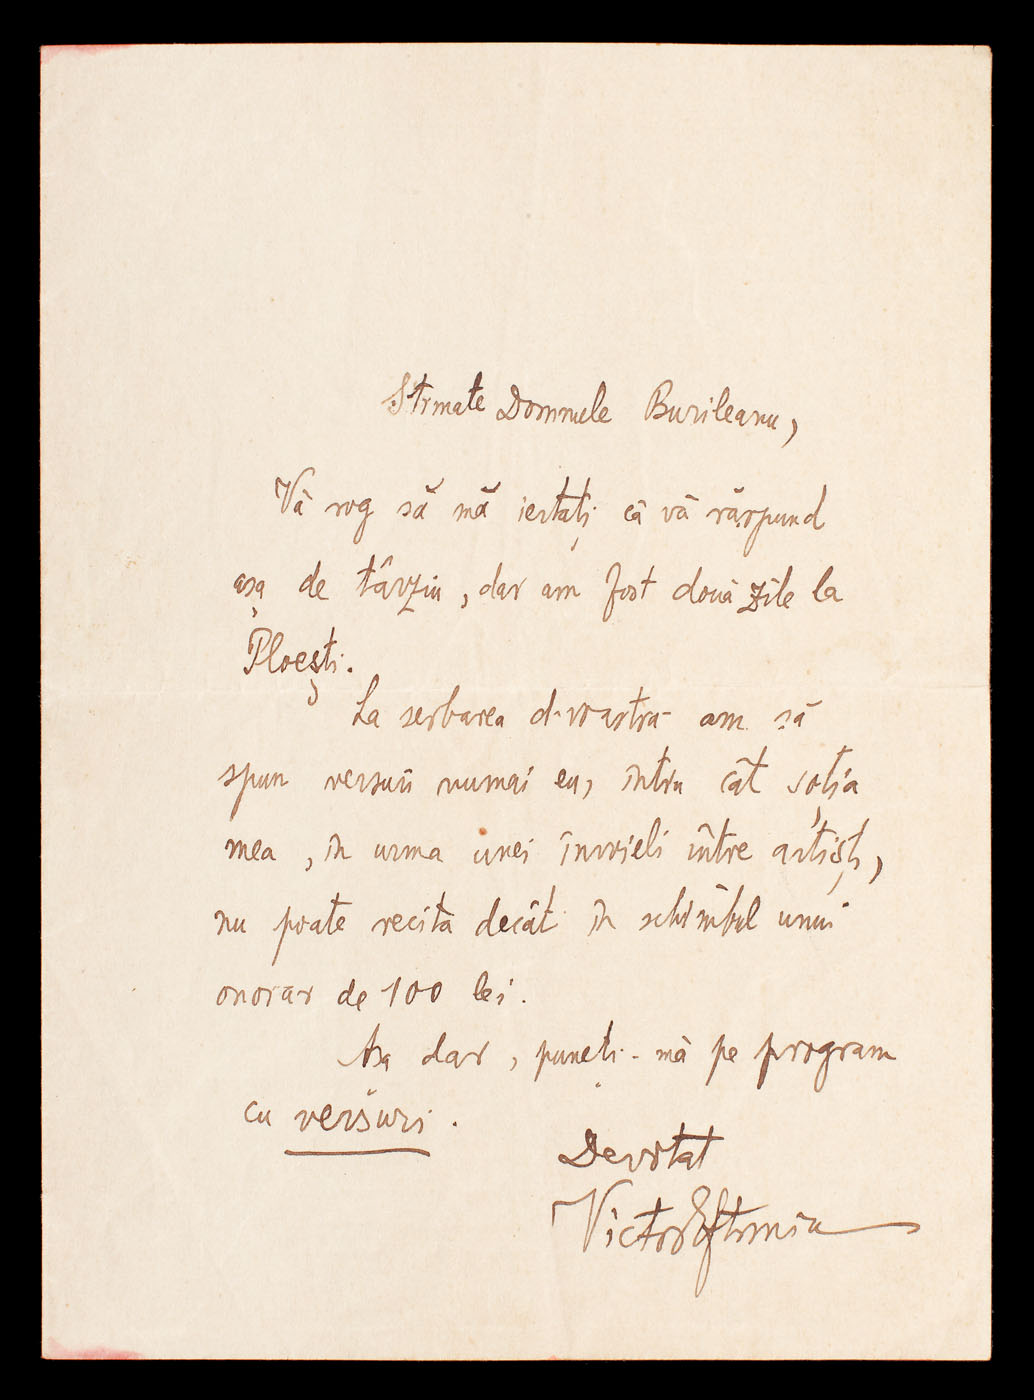 Stimate Domnule Burileanu,
Vă rog să mă iertați că vă răspund
așa de târziu, dar am fost două zile la
Ploești.
La serbarea d-voastră am să
spun versuri numai eu, întru cât soția
mea, în urma unei învoieli între artiști,
nu poate recita decât în schimbul unui
onorar de 100 lei.
Așa dar, puneți-mă pe program
cu versuri.
Devotat
Victor Eftimiu